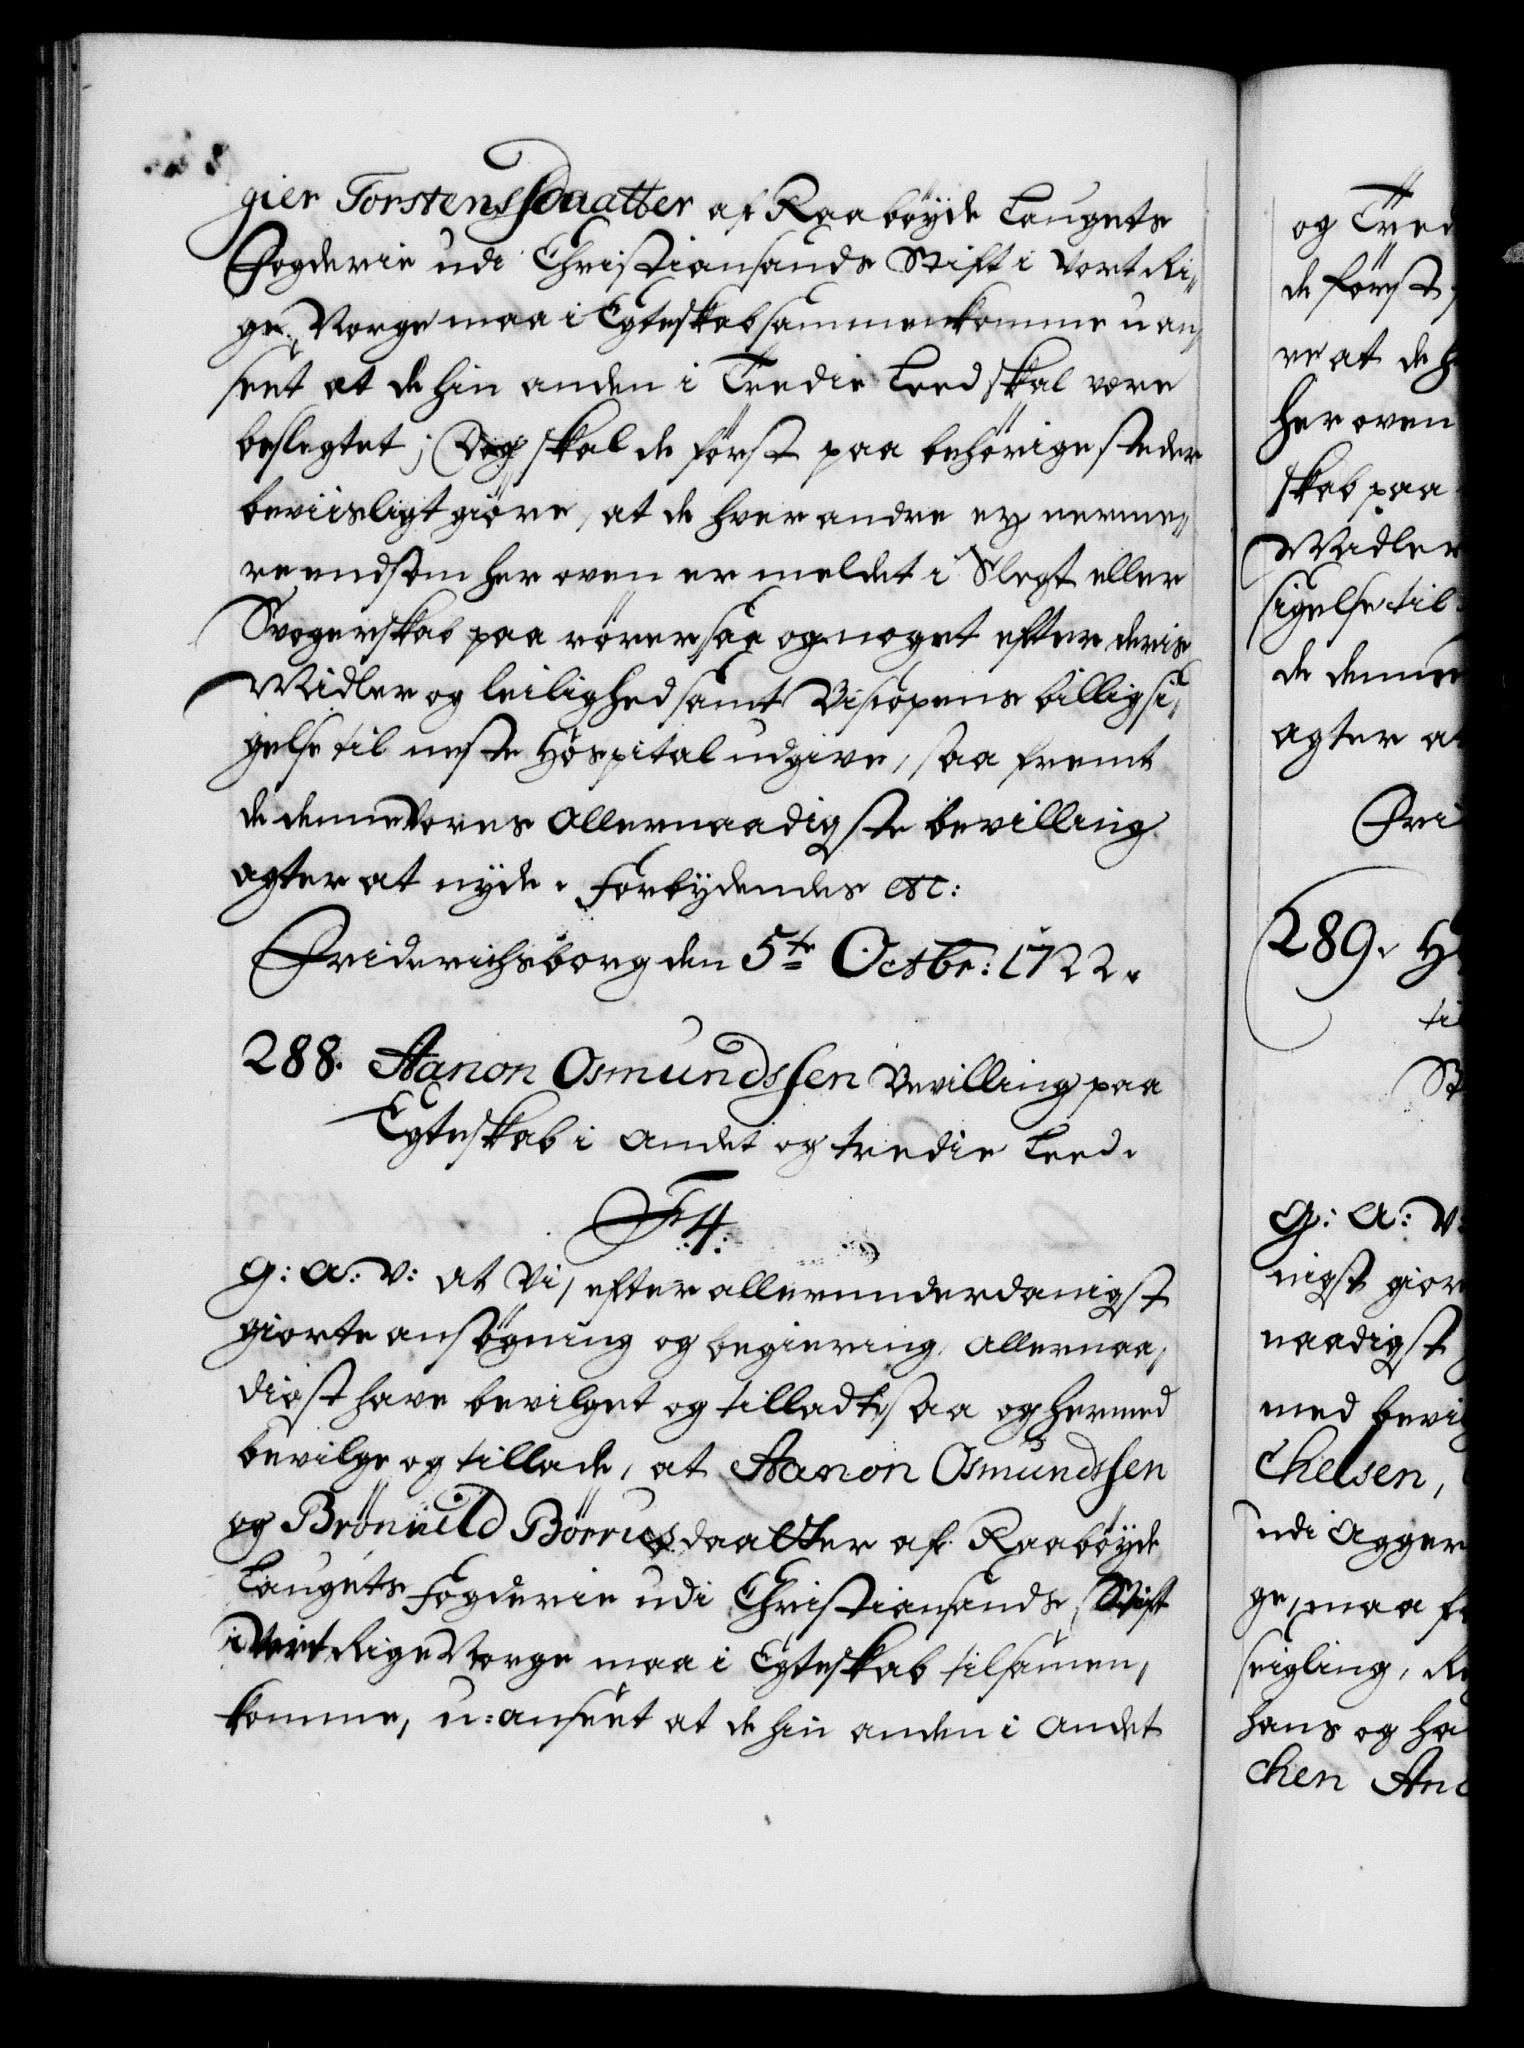 gier Torstensdaatter af Raabøyde Laugets
Fogderie udi Christiansands Stift i Vort Ri„
ge Norge maa i Egteskab sammenkomme u an„
seet at de hin anden i Tredie Leed skal være
beslegtet; Dog skal de først paa behørige steder
beviisligt giøre, at de hver andre ey nerme„
re end som her oven er meldet i Slegt eller
Svogerskab paa rører saa og noget efter deris
Midler og leilighed samt Biscopens billig si„
gelse til neste Hospital udgive, saa fremt
de denne Vores allernaadigste bevilling
agter at nyde. Forbydendes etc:
Friderichsborg den 5te Octbr: 1722.
288. Aanon Osmundssen Bevilling paa
Egteskab i andet og tredie Leed.
F 4.
G: A: V: at Vi, efter allerunderdanigst
giorte ansøgning og begiering, allernaa„
digst have bevilget og tilladt, saa og hermed
bevilge og tillade, at Aanon Osmundssen
og Brønild Børrusdaatter af Raabøyde
Laugets Fogderie udi Christiansands Stift
i Vort Rige Norge maa i Egteskab tilsamen„
komme, u:anseet at de hin anden i andet
og Tred
de først
re at de h
her oven
skab paa
Midler
sigelse til
de denne
agter at
Fri
289. H
ti
St
G: A: V:
nigst gior
naadigst
med bevil
chelsen,
udi Agger
ge, maa f
seigling,
hans og ha
chen An